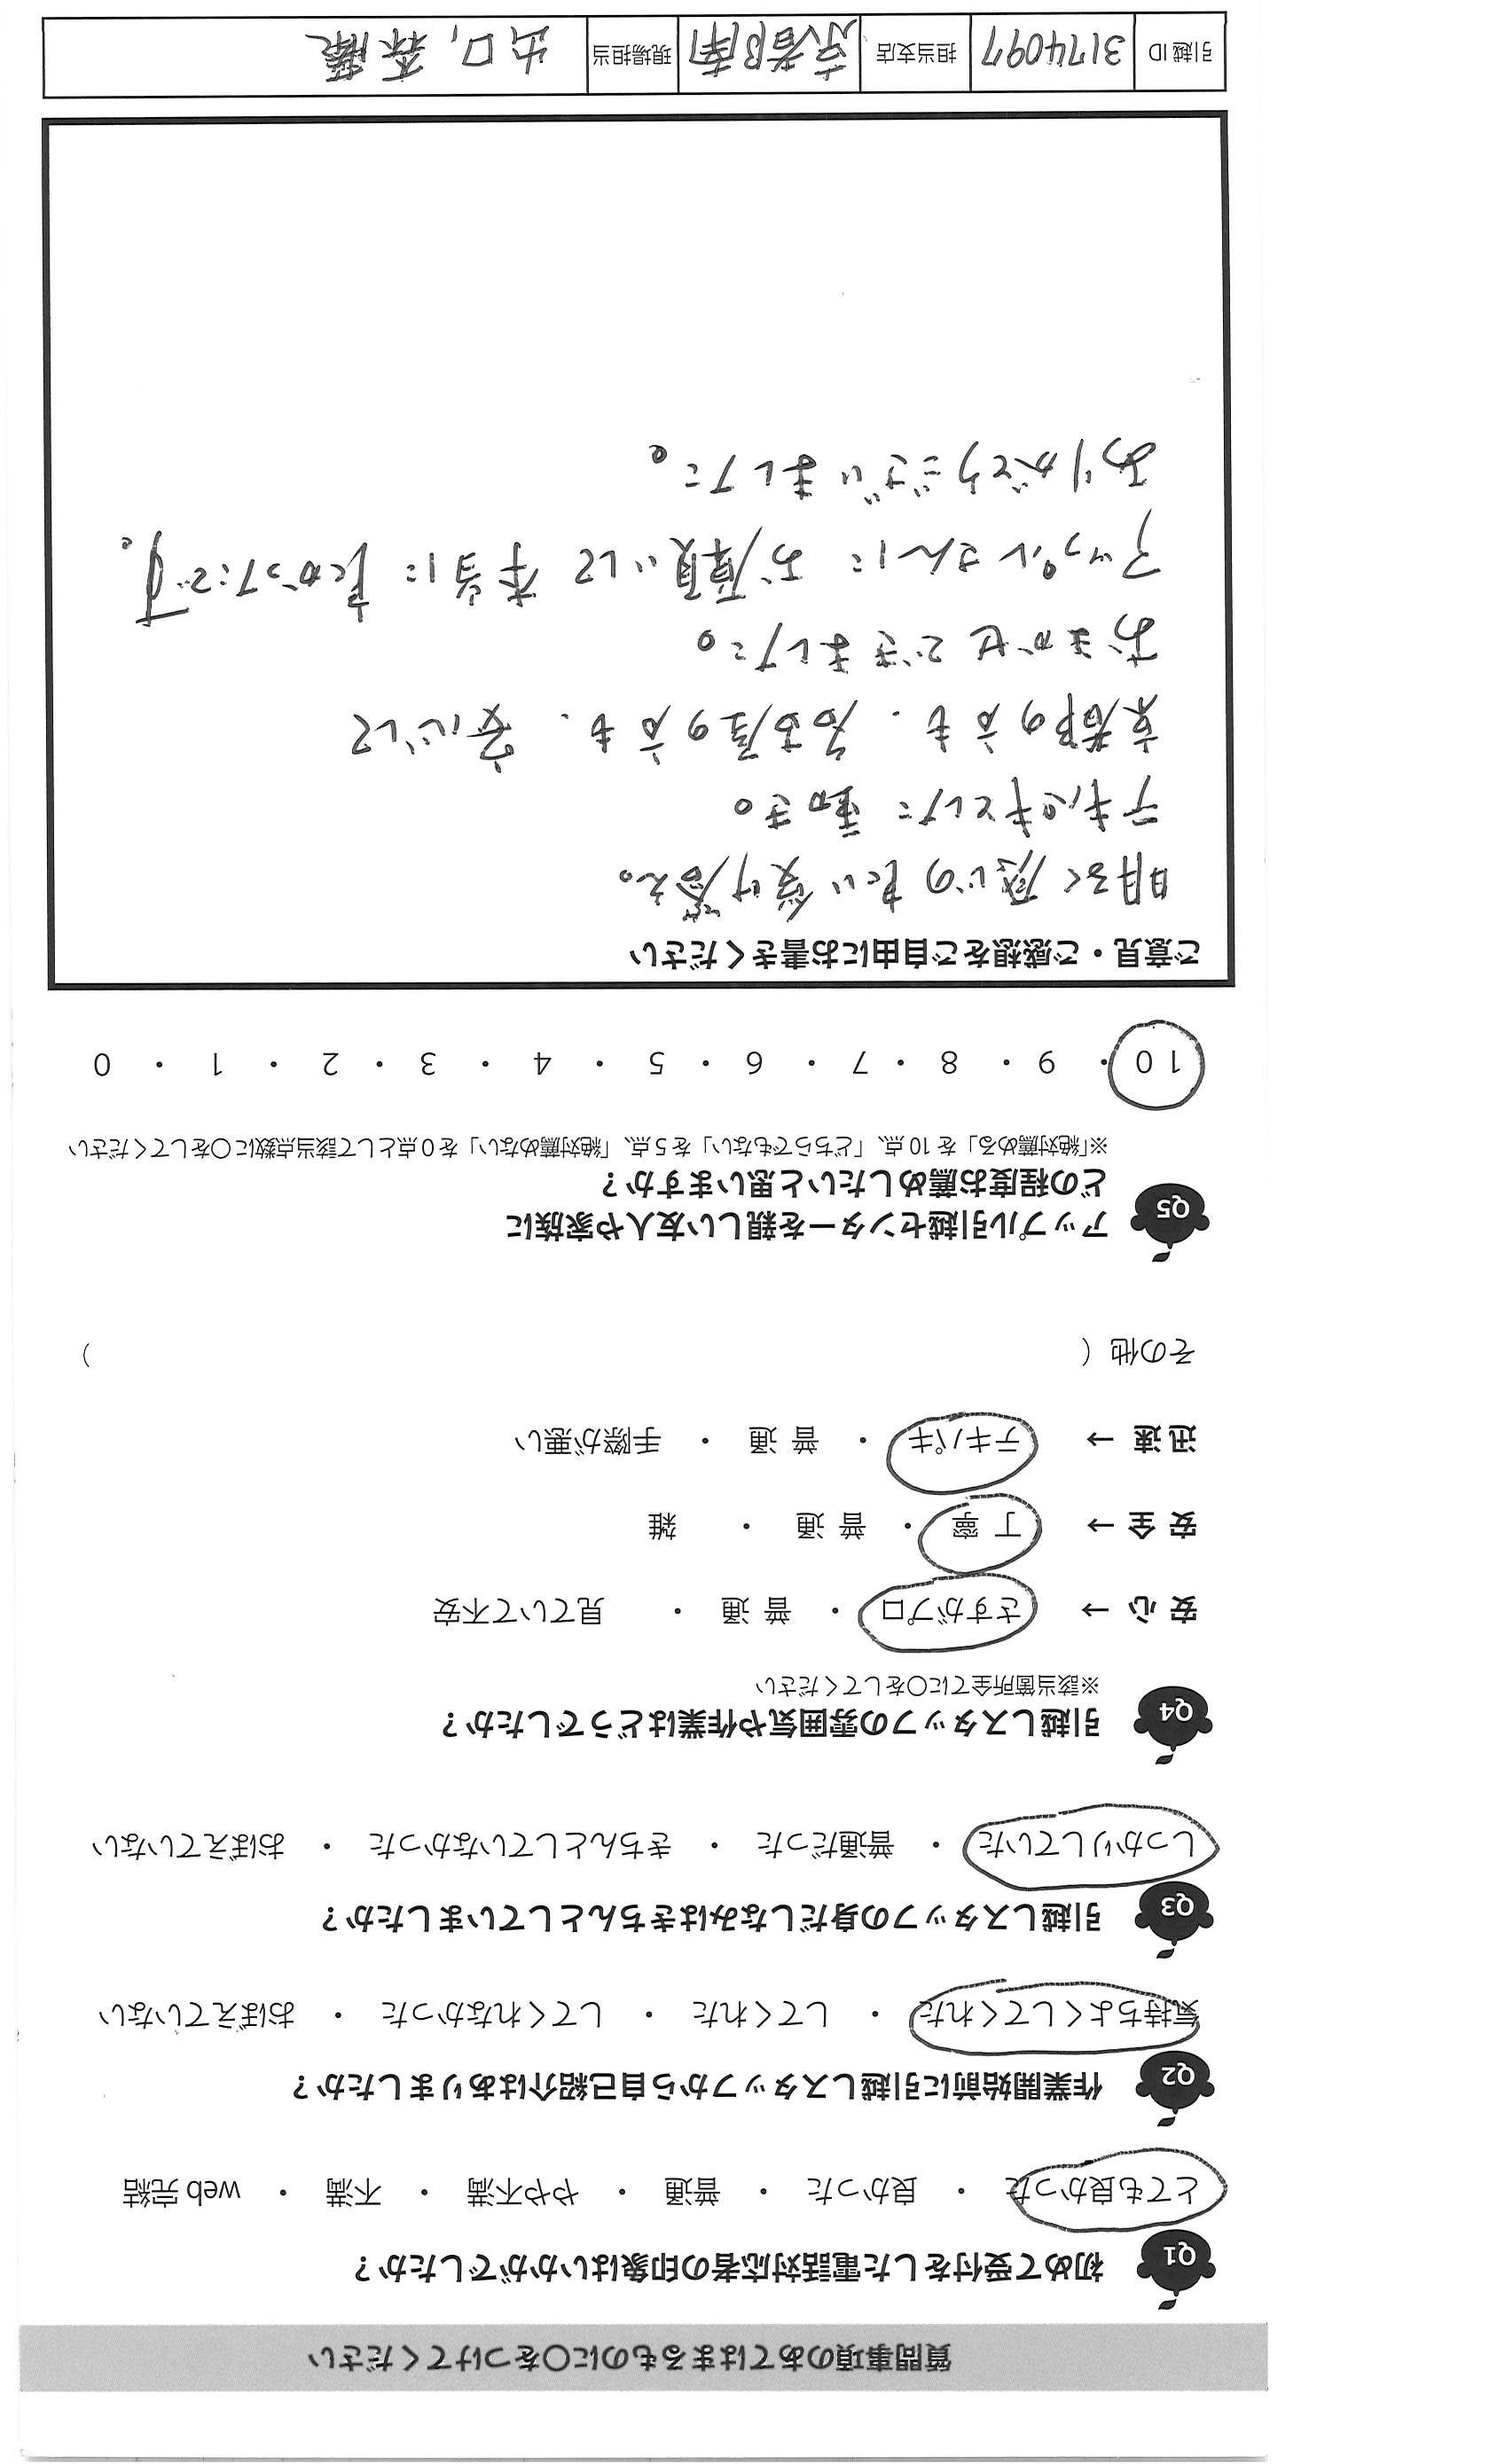 質問事項のあてはまるものに○をつけてください
Q1 初めて受付をした電話対応者の印象はいかがでしたか？
とても良かった ・ 良かった ・ 普通 ・ やや不満 ・ 不満 ・ web 完結
Q2 作業開始前に引越しスタッフから自己紹介はありましたか？
気持ちよくしてくれた ・ してくれた ・ してくれなかった ・ おぼえていない
Q3 引越しスタッフの身だしなみはきちんとしていましたか？
しっかりしていた ・ 普通だった ・ きちんとしていなかった ・ おぼえていない
Q4 引越しスタッフの雰囲気や作業はどうでしたか？
※該当箇所全てに○をしてください
安 心 → さすがプロ ・ 普 通 ・ 見ていて不安
安 全 → 丁 寧 ・ 普 通 ・ 雑
迅 速 → テキパキ ・ 普 通 ・ 手際が悪い
その他 ( )
Q5 アップル引越センターを親しい友人や家族に
どの程度お薦めしたいと思いますか？
※「絶対薦める」を 10 点、「どちらでもない」を 5 点、「絶対薦めない」を 0 点として該当点数に○をしてください
10 ・ 9 ・ 8 ・ 7 ・ 6 ・ 5 ・ 4 ・ 3 ・ 2 ・ 1 ・ 0
ご意見・ご感想をご自由にお書きください
明るく感じの良い受け答え。
テキパキとした動き。
京都の方も、名古屋の方も、安心して
おまかせできました。
アップルさんに お願いして 本当に良かったです。
ありがとうございました。
引越 ID 3174097 担当支店 京都南 現場担当 出口, 森藤